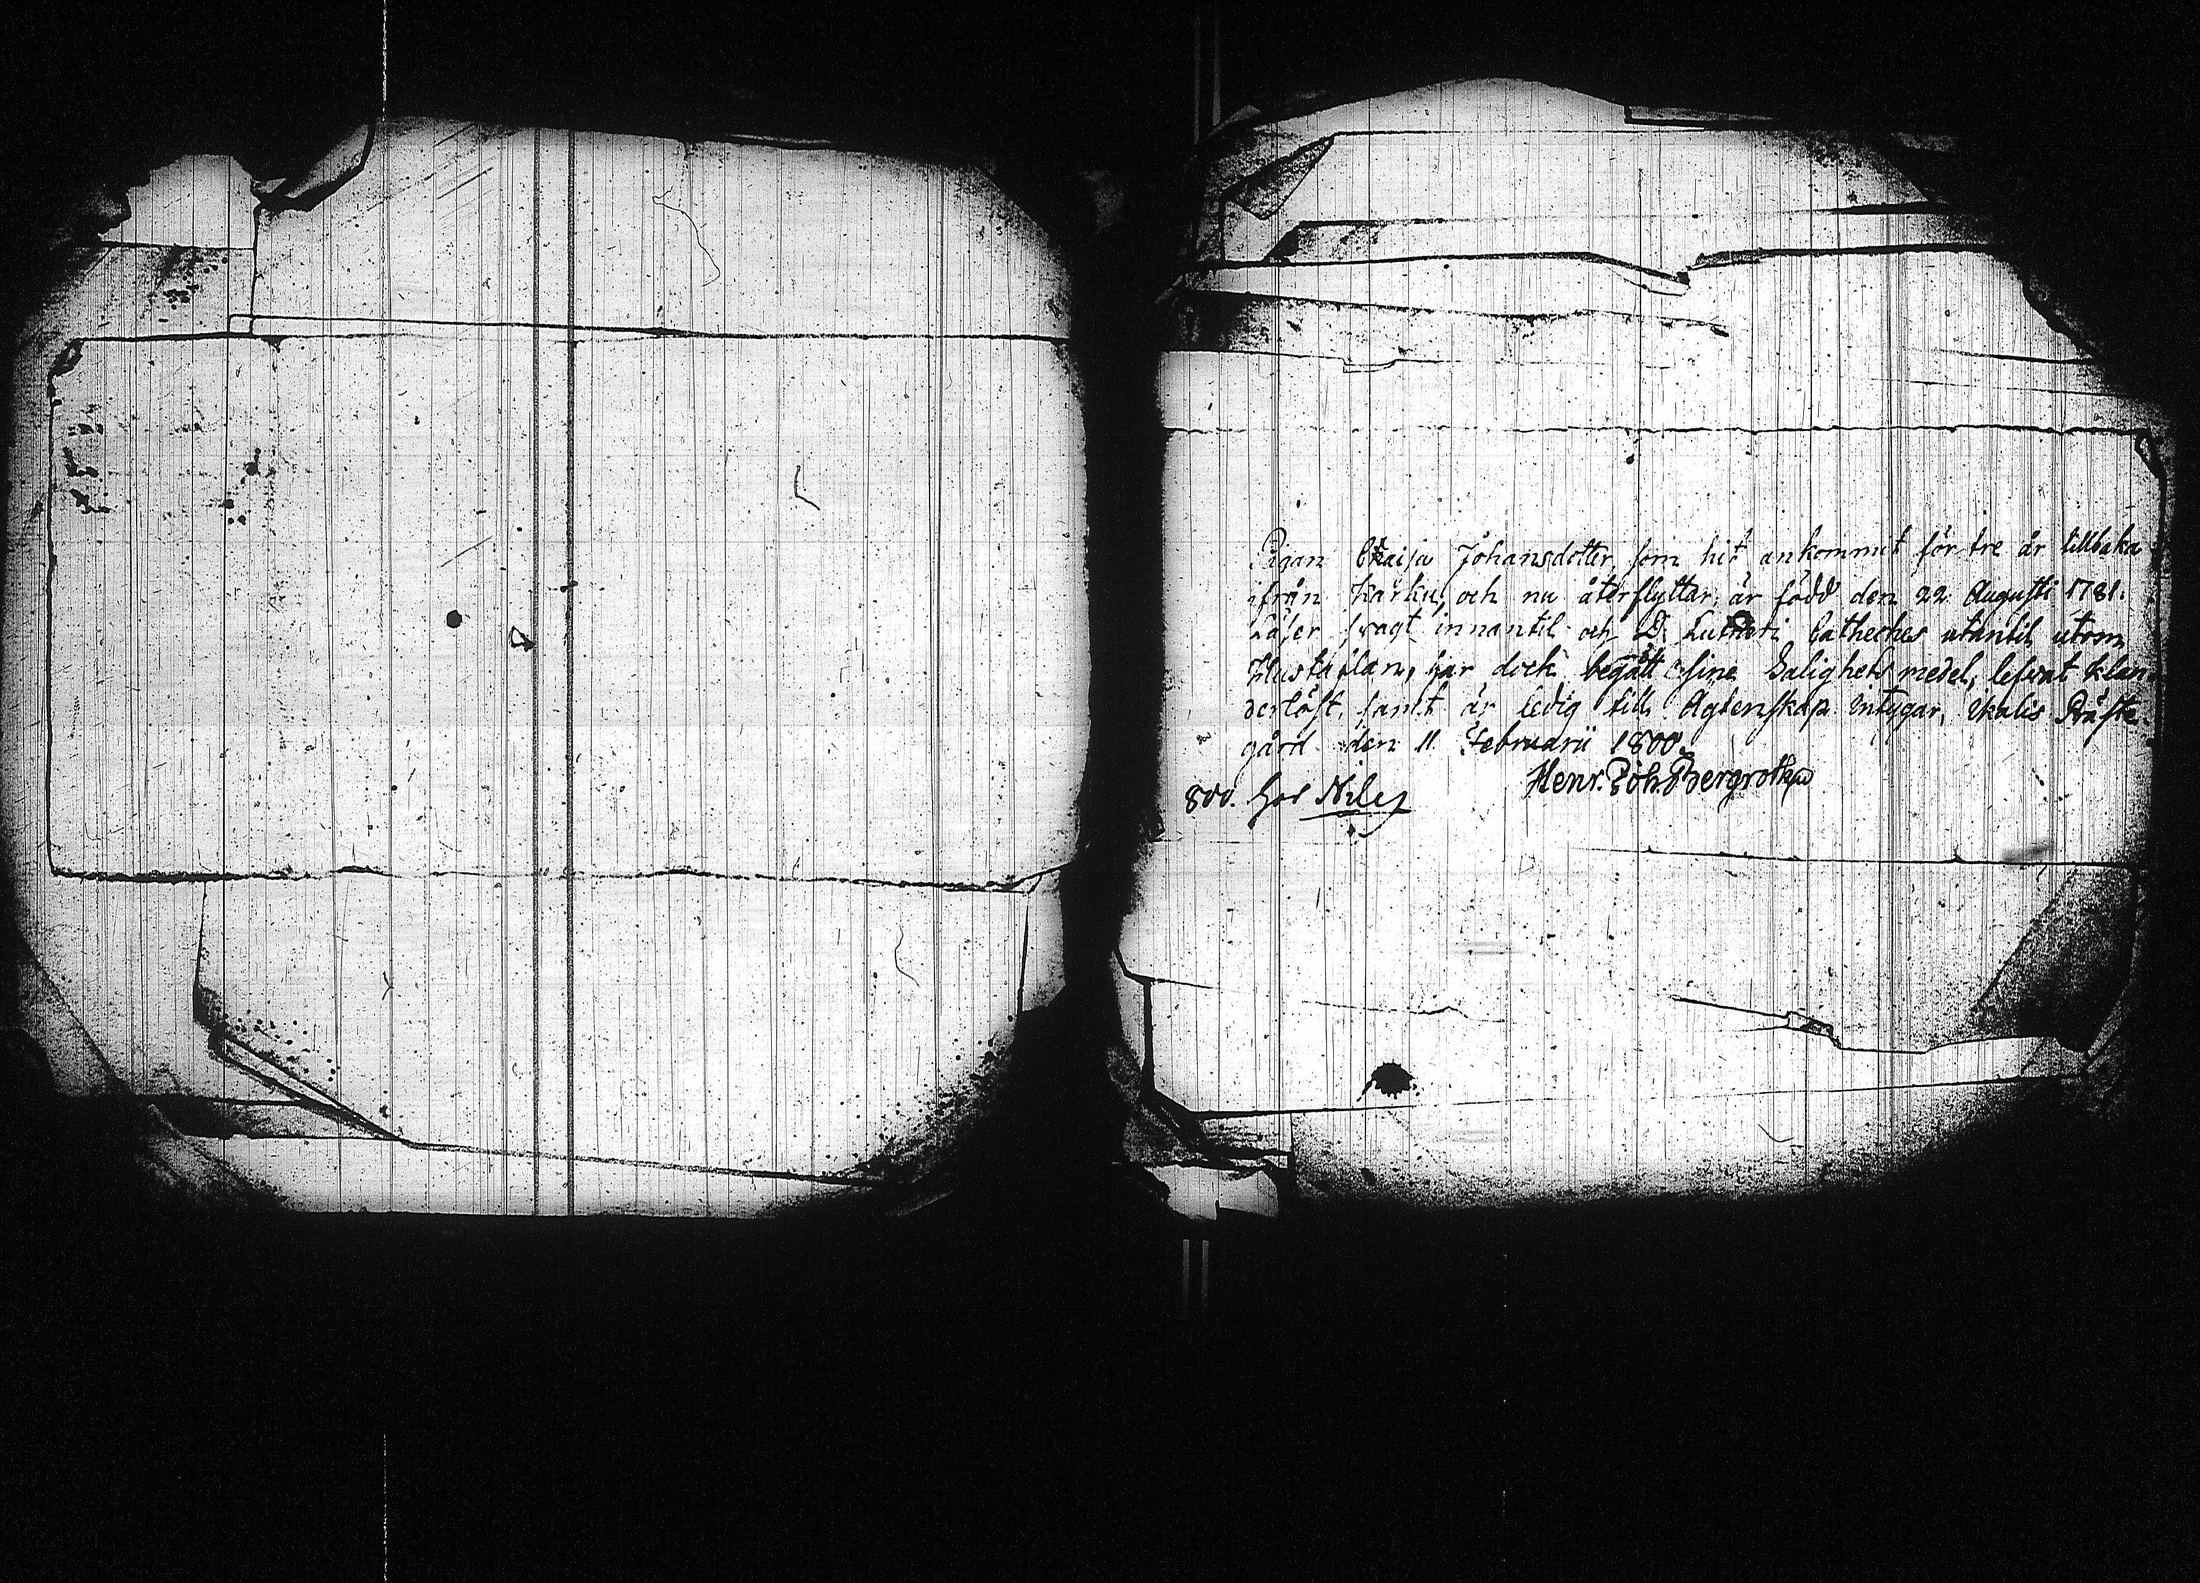 Pigan Caisa Johansdotter, som hit ankommit för tre år tillbaka
ifrån Karku, och nu återflyttar, är född den 22 Augusti 1781.
Läser svagt innantil och D. Lutheri Catheches utantil utom
Hustaflan, har dock begått sine Salighets medel, lefvat klan-
derlöst, samt är ledig till Ägtenskap intygar, Ikalis Präste-
gård den 11 Februarii 1800.
Henr. Joh. Bergroth
800.